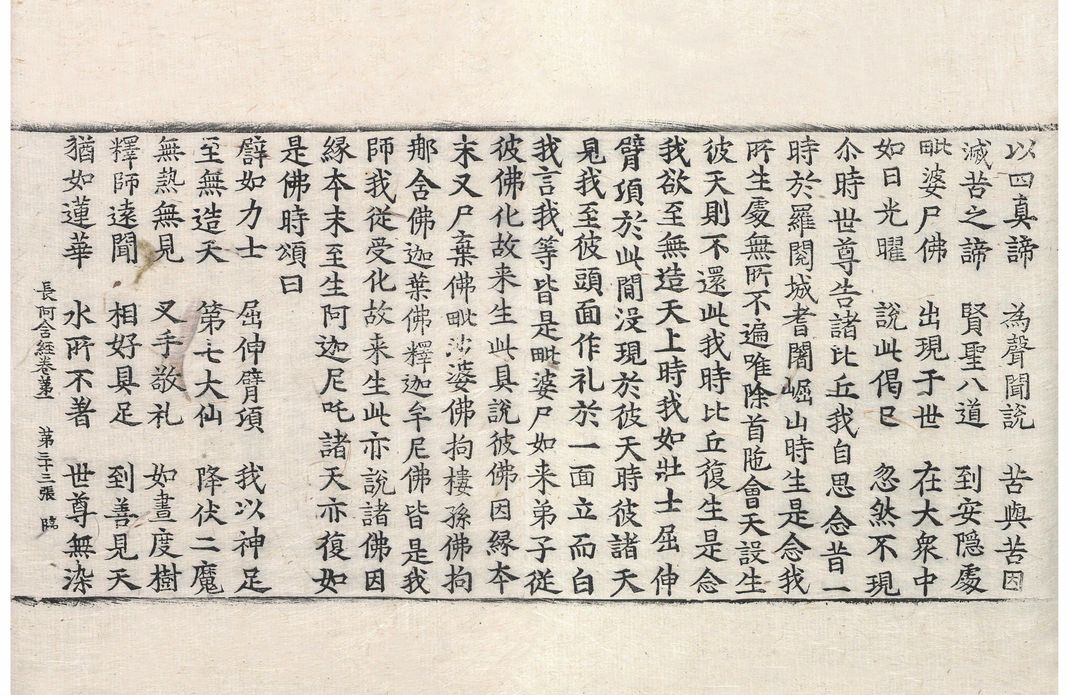 以四真諦 為聲聞說 苦與苦因
滅苦之諦 賢聖八道 到安隱處
毗婆尸佛 出現于世 在大眾中
如日光曜 說此偈已 忽然不現
尒時世尊告諸比丘我自思念昔一
時於羅閱城耆闍崛山時生是念我
所生處無所不遍唯除首陁會天設生
彼天則不還此我時比丘復生是念
我欲至無造天上時我如壯士屈伸
臂項於此間沒現於彼天時彼諸天
見我至彼頭面作礼於一面立而白
我言我等皆是毗婆尸如来弟子従
彼佛化故来生此具說彼佛因緣本
末又尸棄佛毗沙婆佛拘樓孫佛拘
那含佛迦葉佛釋迦牟尼佛皆是我
師我従受化故来生此亦說諸佛因
緣本末至生阿迦尼吒諸天亦復如
是佛時頌曰
譬如力士 屈伸臂項 我以神足
至無造天 第七大仙 降伏二魔
無熱無見 叉手敬礼 如晝度樹
釋師遠聞 相好具足 到善見天
猶如蓮華 水所不著 世尊無染
長阿含經卷第一 第三十三張 臨